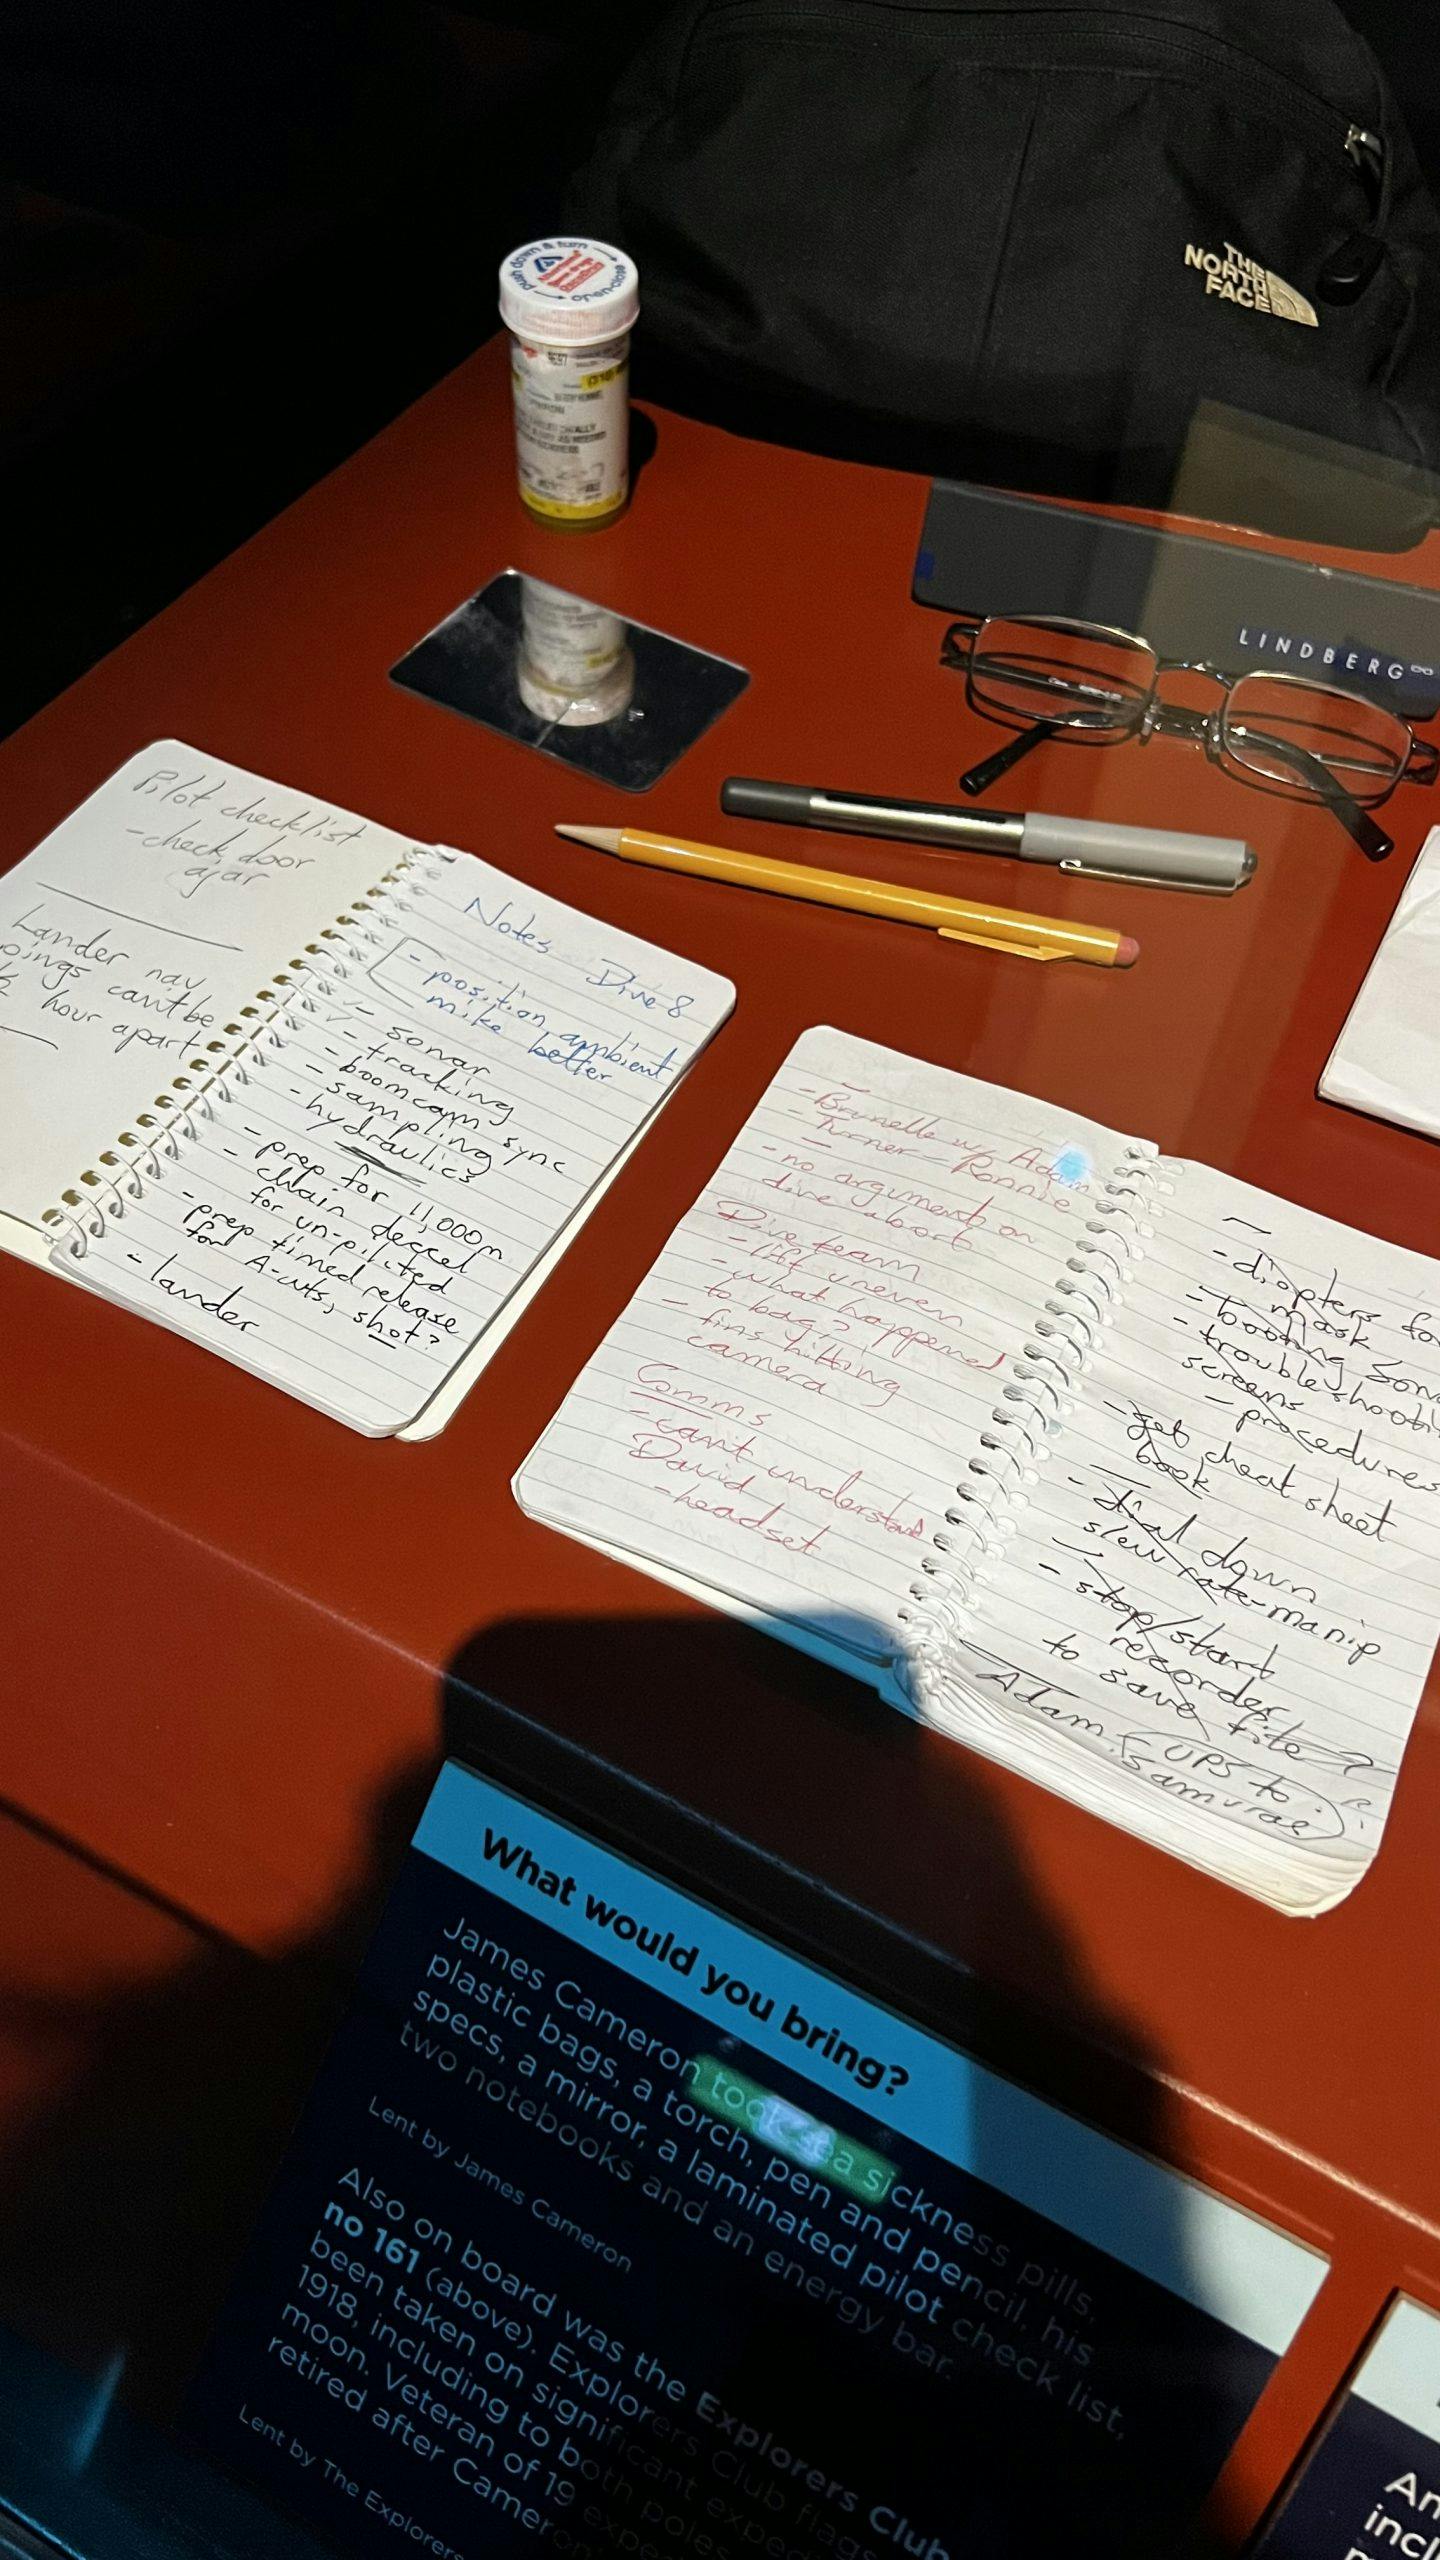 THE
NORTH
FACE
push down & turn
open-close
LINDBERG
Pilot checklist
- check door
ajar
Lander nav
pings can't be
hour apart
Notes Dive 8
- position ambient
mike better
- sonar
- tracking
- boomcam sync
- sampling
- hydraulics
- prep for 11,000m
- chain deccel
for un-piloted
- prep timed release
for A-cuts, shot?
- lander
- Brunelle w/ Adam
- Turner - Ronnie
- no argument on
dive abort
Dive team
- lift uneven
- what happened
to bag?
- fins hitting
camera
Comms
- can't understand
David
- headset
- diopters for
mask
- booting
- troubleshooting
screens
- procedures
- get cheat sheet
book
- dial down
slew rate-manip
- stop/start
recorder
to save file
Adam
UPS to
What would you bring?
James Cameron took sea sickness pills,
plastic bags, a torch, pen and pencil, his
specs, a mirror, a laminated pilot check list,
two notebooks and an energy bar.
Lent by James Cameron
Also on board was the Explorers Club
no 161 (above). Explorers Club flags
been taken on significant
1918, including to both poles
moon. Veteran of 19
retired after Cameron
Lent by The Explorers